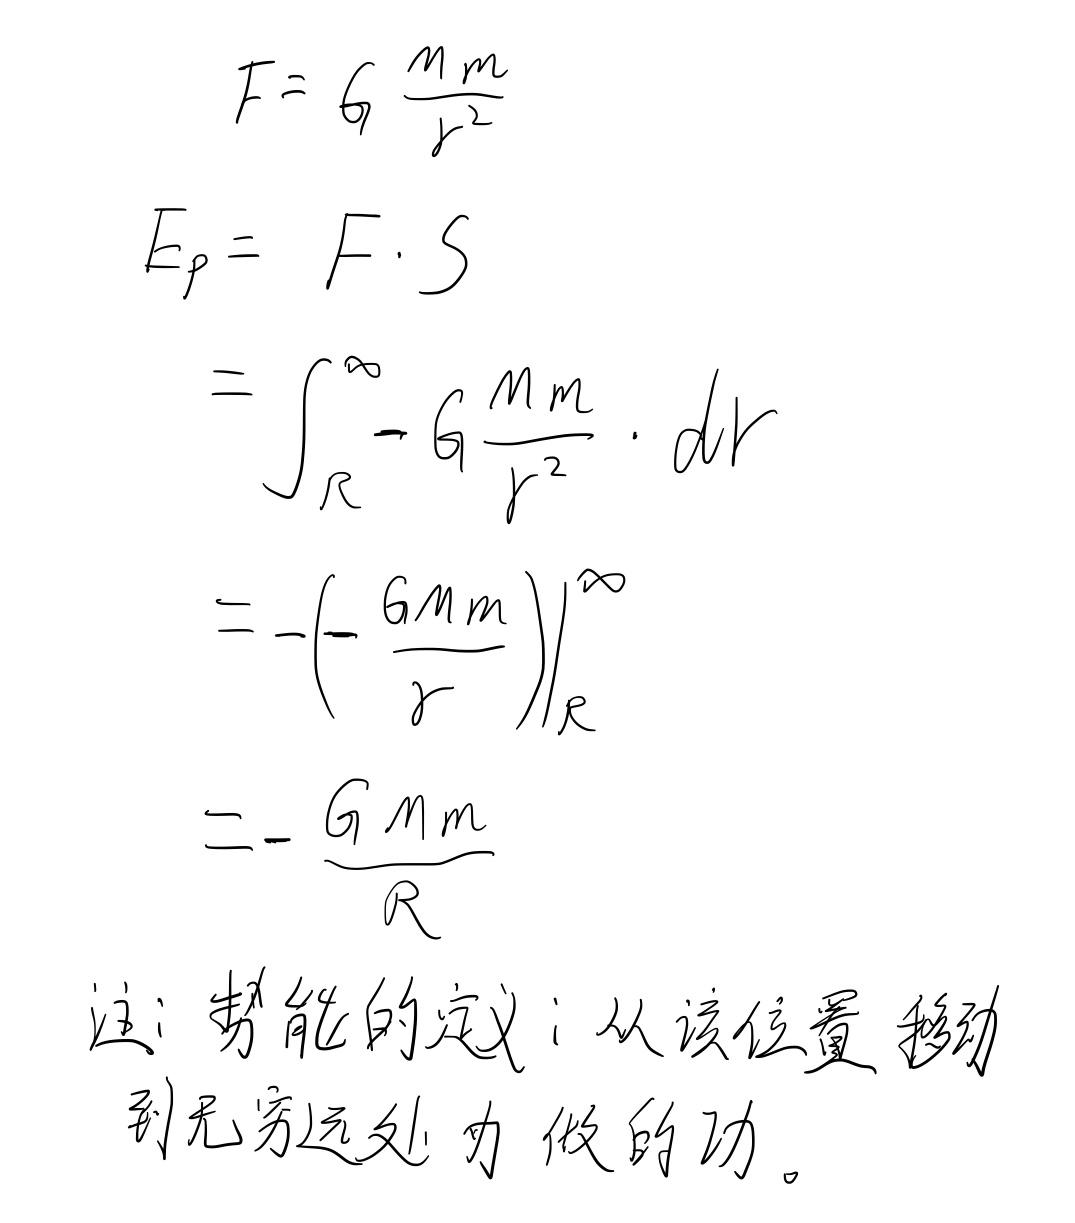 F = G \frac{Mm}{r^2}
E_p = F · S
= \int_R^∞ - G \frac{Mm}{r^2} · dr
= -(- \frac{GMm}{r}) |_R^∞
= - \frac{GMm}{R}
注：势能的定义：从该位置移动
到无穷远处力做的功。